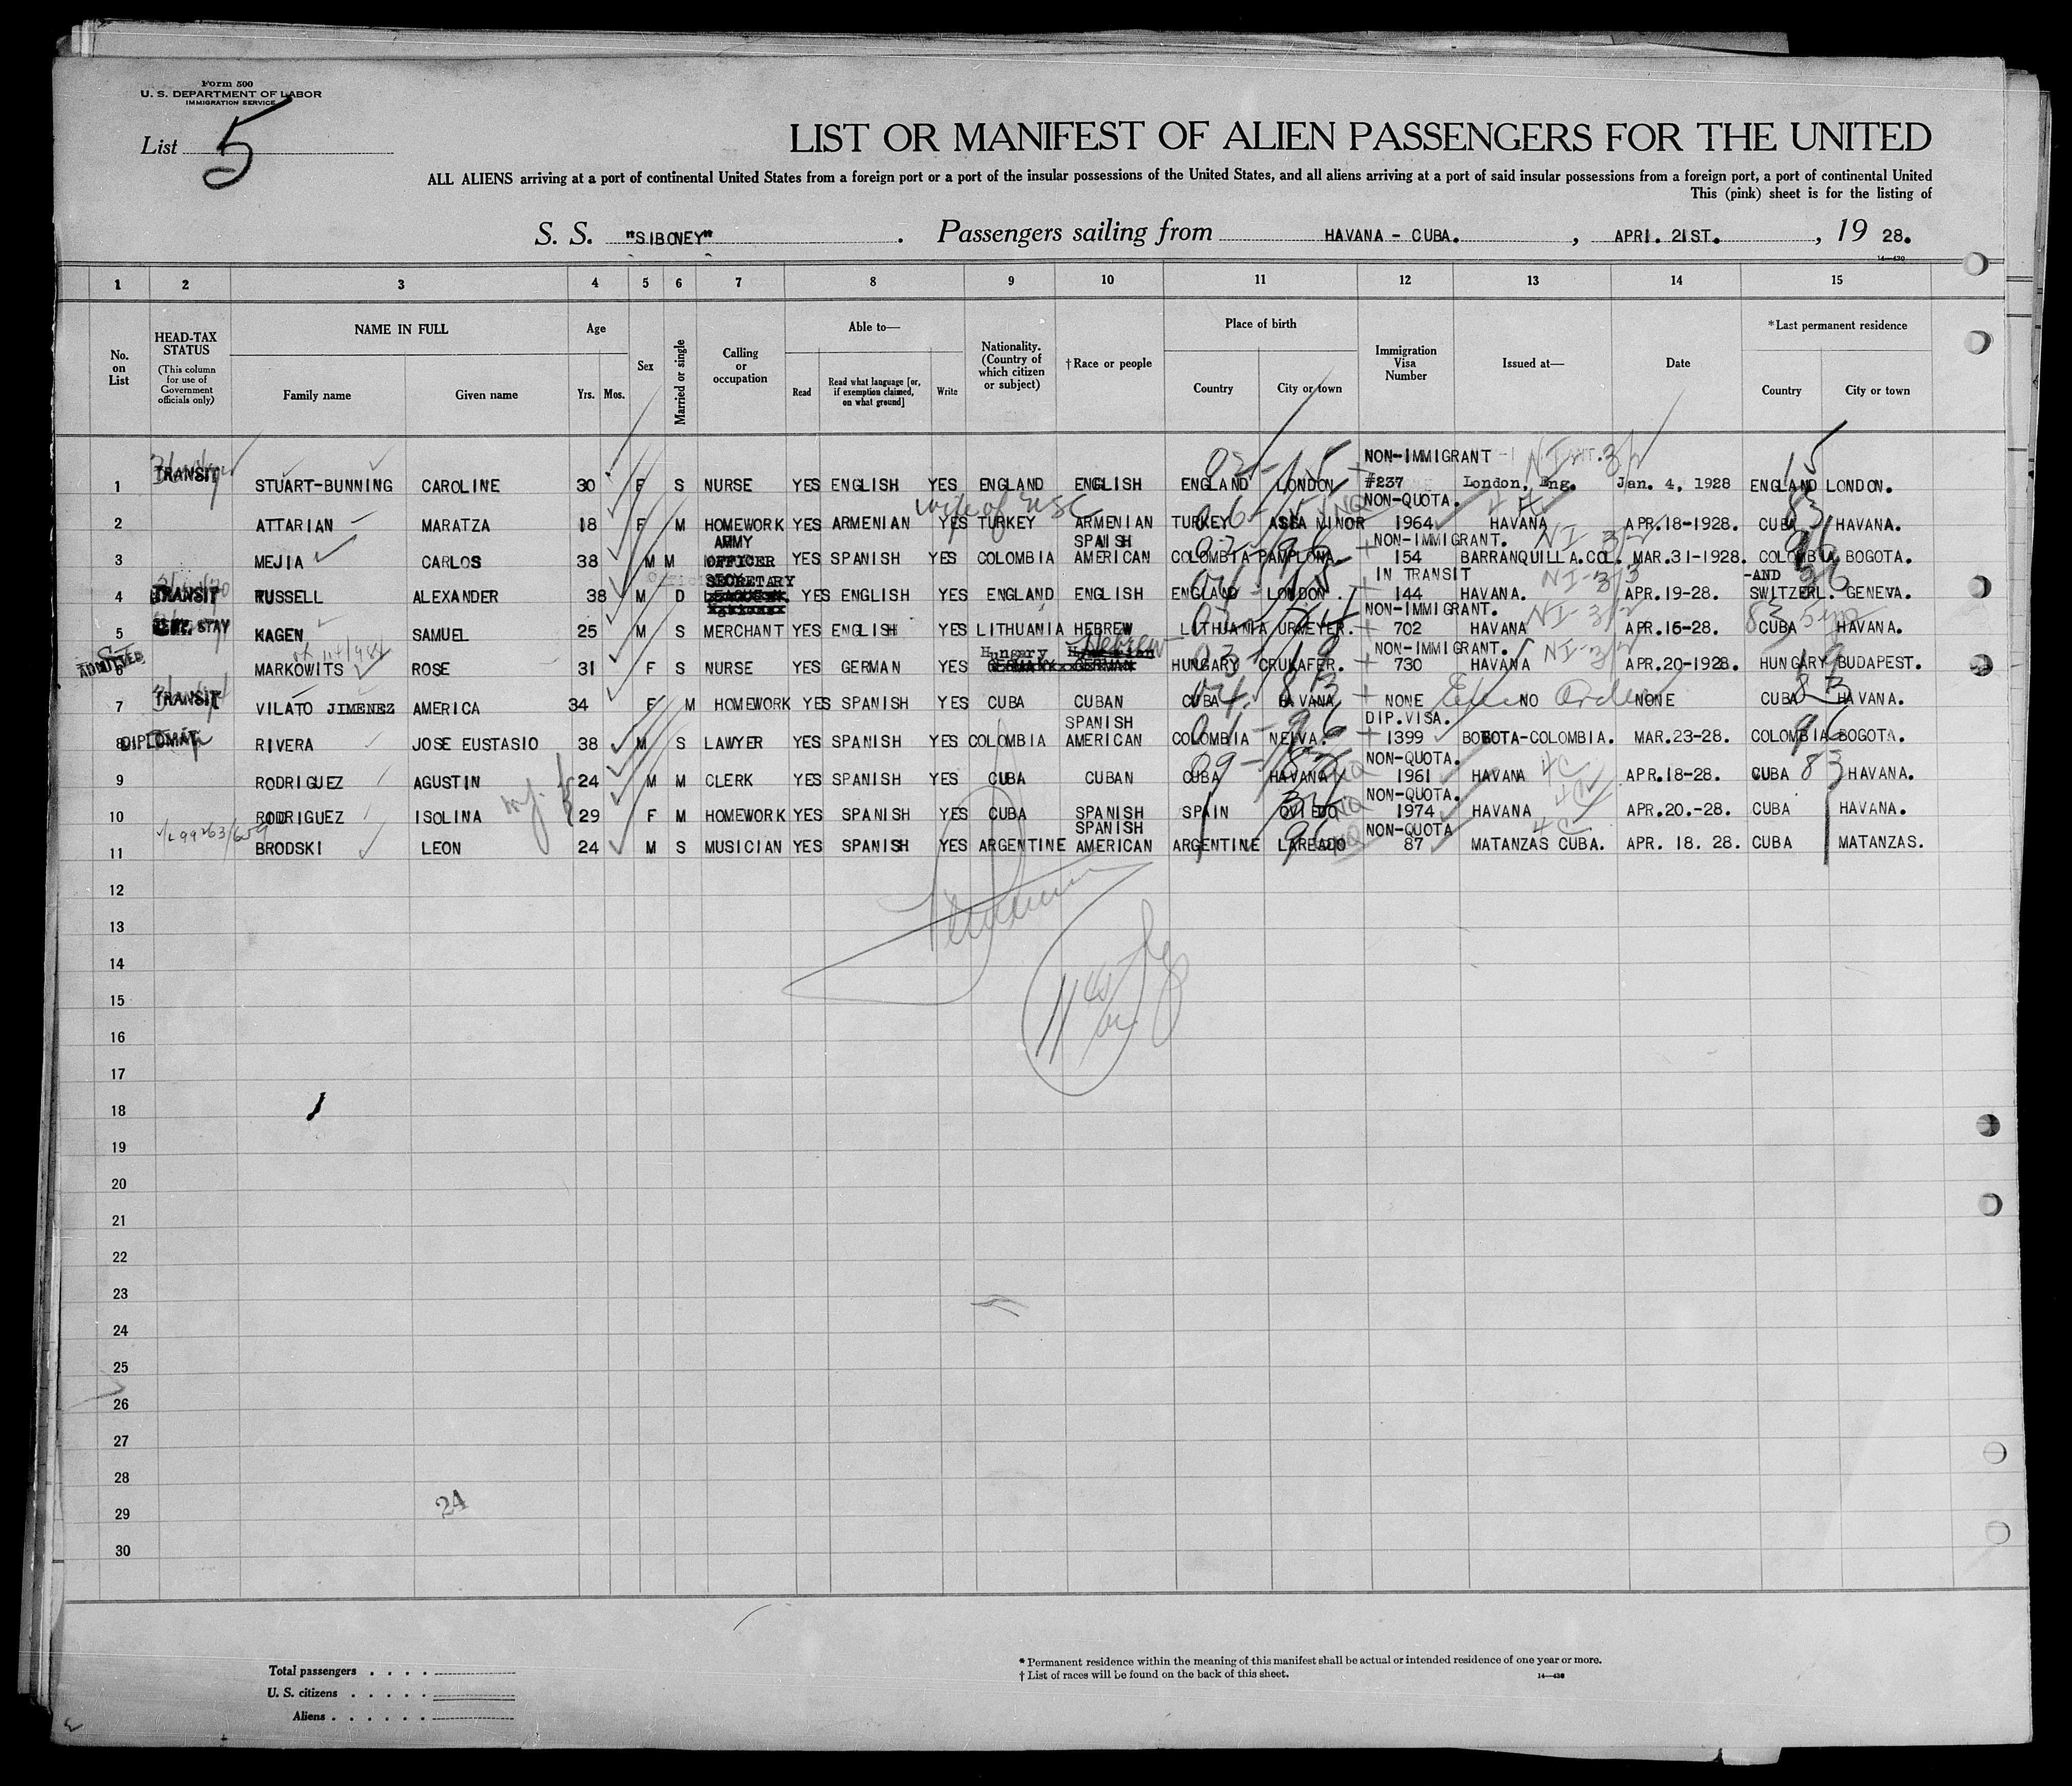 Form 500
U. S. DEPARTMENT OF LABOR
IMMIGRATION SERVICE
List 5
LIST OR MANIFEST OF ALIEN PASSENGERS FOR THE UNITED
ALL ALIENS arriving at a port of continental United States from a foreign port or a port of the insular possessions of the United States, and all aliens arriving at a port of said insular possessions from a foreign port, a port of continental United
This (pink) sheet is for the listing of
S. S. "SIBONEY". Passengers sailing from HAVANA - CUBA. , APRI. 21ST. , 19 28.
14—430
1 2 3 4 5 6 7 8 9 10 11 12 13 14 15
No. on List
HEAD-TAX STATUS (This column for use of Government officials only)
NAME IN FULL Family name Given name
Age Yrs. Mos.
Sex
Married or single
Calling or occupation
Able to— Read Read what language [or, if exemption claimed, on what ground] Write
Nationality. (Country of which citizen or subject)
†Race or people
Place of birth Country City or town
Immigration Visa Number
Issued at—
Date
*Last permanent residence Country City or town
NON-IMMIGRANT NI 3/2 15
1 TRANSIT STUART-BUNNING CAROLINE 30 F S NURSE YES ENGLISH YES ENGLAND ENGLISH ENGLAND LONDON #237 London, Eng. Jan. 4, 1928 ENGLAND LONDON.
wife of USC NON-QUOTA. 83
2 ATTARIAN MARATZA 18 F M HOMEWORK YES ARMENIAN YES TURKEY ARMENIAN TURKEY ASIA MINOR 1964 HAVANA APR.18-1928. CUBA HAVANA.
ARMY SPANISH NON-IMMIGRANT. NI-3/2
3 MEJIA CARLOS 38 M M OFFICER YES SPANISH YES COLOMBIA AMERICAN COLOMBIA PAMPLONA. 154 BARRANQUILLA.COL. MAR.31-1928. COLOMBIA BOGOTA.
SECRETARY IN TRANSIT NI-3/3 -AND
4 TRANSIT RUSSELL ALEXANDER 38 M D YES ENGLISH YES ENGLAND ENGLISH ENGLAND LONDON. 144 HAVANA. APR.19-28. SWITZERL. GENEVA.
NON-IMMIGRANT. NI-3/2
5 STAY KAGEN SAMUEL 25 M S MERCHANT YES ENGLISH YES LITHUANIA HEBREW LITHUANIA URMEYER. 702 HAVANA APR.16-28. CUBA HAVANA.
Hungary Hebrew NON-IMMIGRANT. NI-3/2
6 ADMITTED MARKOWITS ROSE 31 F S NURSE YES GERMAN YES GERMAN HUNGARY CRUKAFER. 730 HAVANA APR.20-1928. HUNGARY BUDAPEST.
7 TRANSIT VILATO JIMENEZ AMERICA 34 F M HOMEWORK YES SPANISH YES CUBA CUBAN CUBA HAVANA NONE NO NONE CUBA 83 HAVANA.
SPANISH DIP.VISA. 96
8 DIPLOMAT RIVERA JOSE EUSTASIO 38 M S LAWYER YES SPANISH YES COLOMBIA AMERICAN COLOMBIA NEIVA. 1399 BOGOTA-COLOMBIA. MAR.23-28. COLOMBIA BOGOTA.
NON-QUOTA.
9 RODRIGUEZ AGUSTIN 24 M M CLERK YES SPANISH YES CUBA CUBAN CUBA HAVANA 1961 HAVANA 4C APR.18-28. CUBA 83 HAVANA.
NON-QUOTA.
10 RODRIGUEZ ISOLINA 29 F M HOMEWORK YES SPANISH YES CUBA SPANISH SPAIN OVIEDO 1974 HAVANA APR.20.-28. CUBA HAVANA.
SPANISH NON-QUOTA 4C
11 BRODSKI LEON 24 M S MUSICIAN YES SPANISH YES ARGENTINE AMERICAN ARGENTINE 87 MATANZAS CUBA. APR. 18. 28. CUBA MATANZAS.
12
13
14
15
16
17
18
19
20
21
22
23
24
25
26
27
28
29 24
30
Total passengers
U. S. citizens
Aliens
* Permanent residence within the meaning of this manifest shall be actual or intended residence of one year or more.
† List of races will be found on the back of this sheet.
14—430